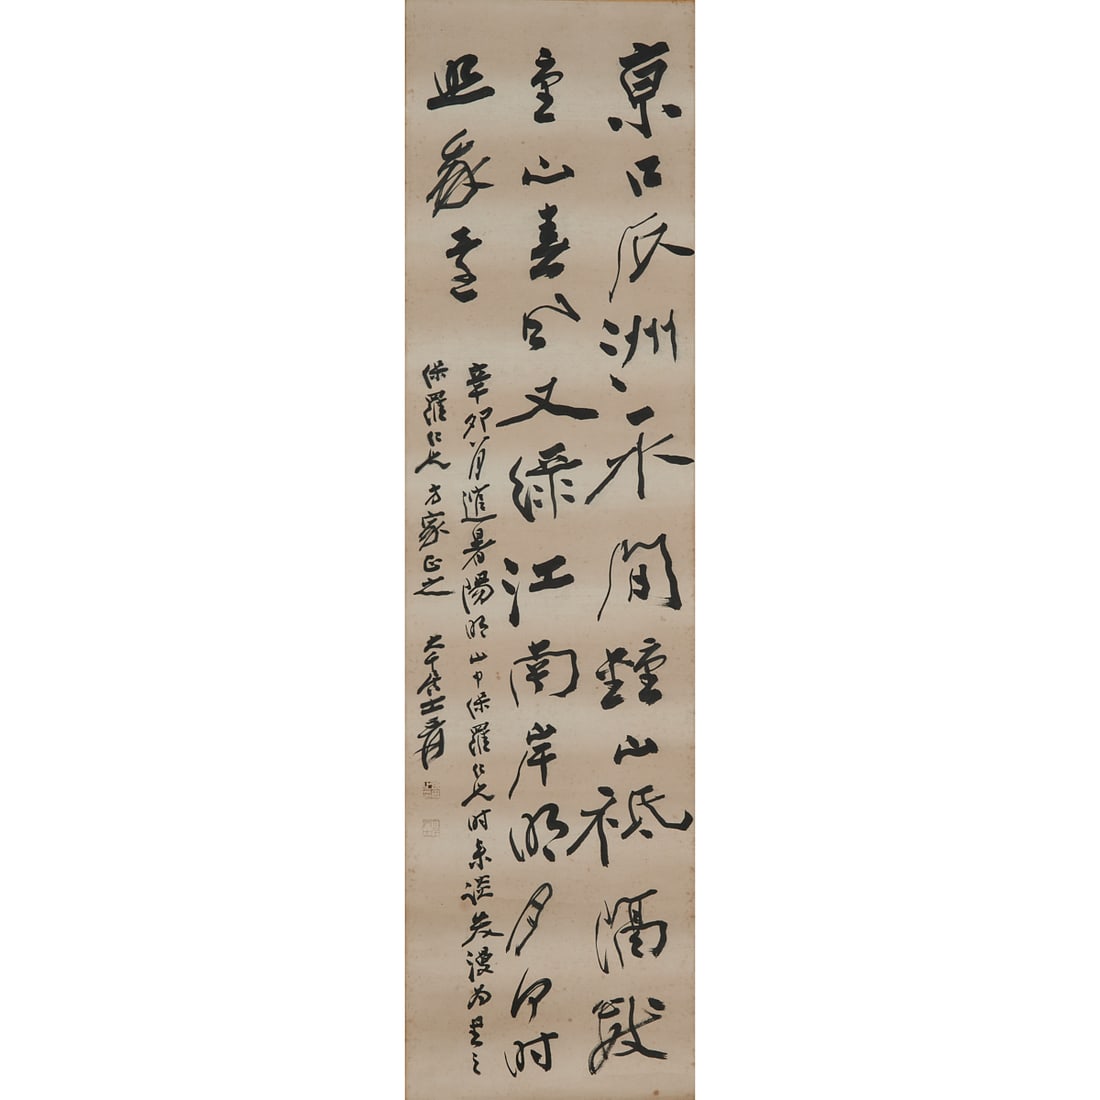 京口瓜洲一水間鍾山祗隔數
重山春風又綠江南岸明月何時
照我還
辛卯八月避暑陽明山中保羅仁兄時來談藝漫為書之
保羅仁兄方家正之
大千居士爰